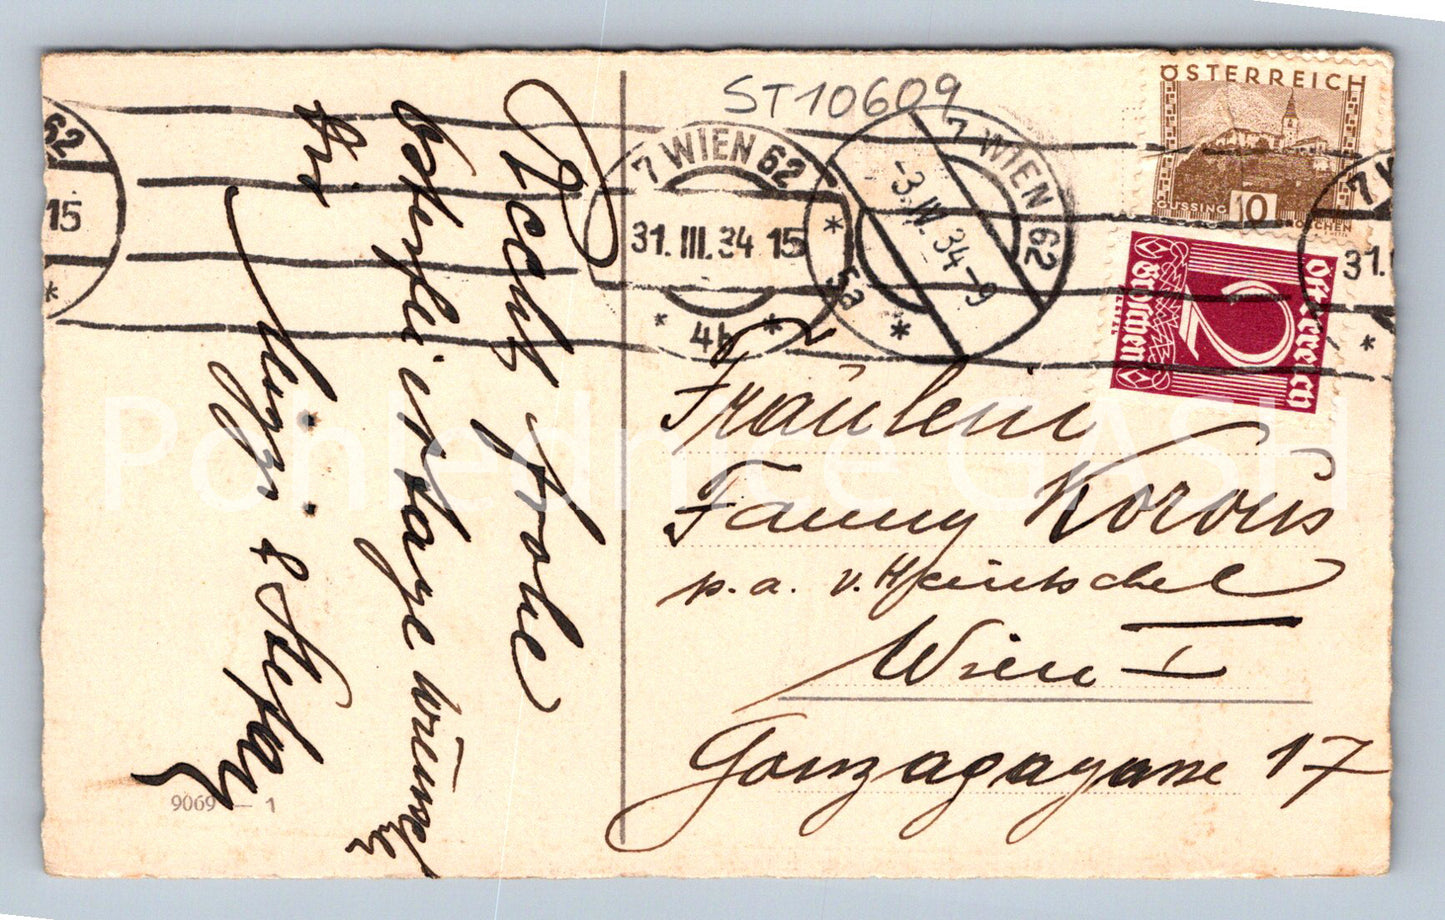 ST10609
7 WIEN 62
31.III.34 15
* 4h *
7 WIEN 62
-3.IV.34-9
* 5a *
62
15
*
7
31.
*
ÖSTERREICH
GÜSSING 10 GROSCHEN
Österreich
2
Groschen
Recht frohe
Osterfeiertage wünschen
Dir
Mizzi & Stefan
Fräulein
Fanny
p. a. v. Heintschel
Wien I
Gonzagagasse 17
9069 — 1
Pohlednice GASH